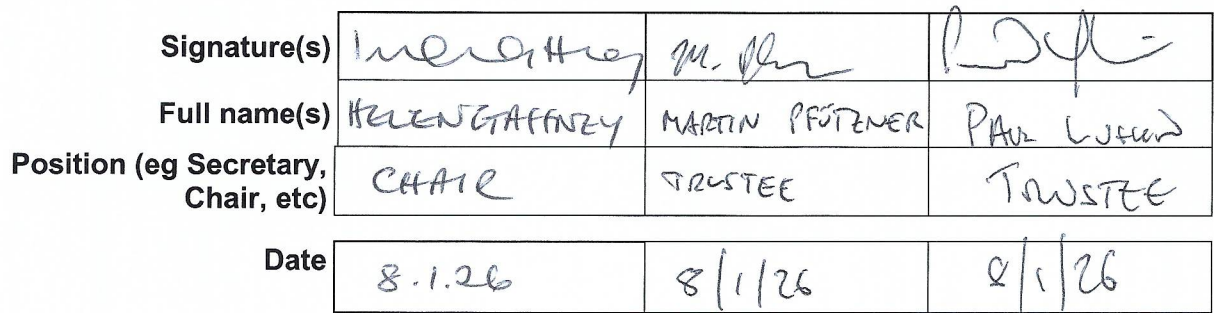 Signature(s)
Full name(s) HELEN GAFFNEY MARTIN PFÜTZNER PAUL
Position (eg Secretary, CHAIR TRUSTEE TRUSTEE
Chair, etc)
Date 8.1.26 8/1/26 8/1/26